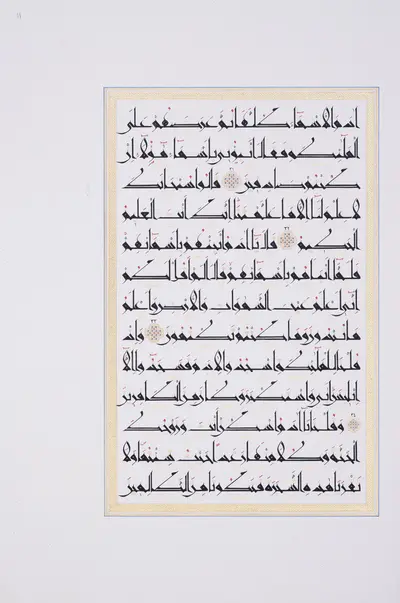 آدم الاسماء كلها ثم عرضهم على
الملئكة فقال انبئوني باسماء هؤلاء ان
كنتم صادقين قالوا سبحانك
لا علم لنا الا ما علمتنا انك انت العليم
الحكيم قال يا آدم انبئهم باسمائهم
فلما انباهم باسمائهم قال الم اقل لكم
اني اعلم غيب السموات والارض واعلم
ما تبدون وما كنتم تكتمون واذ
قلنا للملئكة اسجدوا لآدم فسجدوا الا
ابليس ابى واستكبر وكان من الكافرين
وقلنا يا آدم اسكن انت وزوجك
الجنة وكلا منها رغدا حيث شئتما ولا
تقربا هذه الشجرة فتكونا من الظالمين